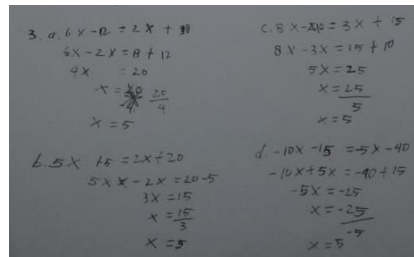 3. a. 6x - 12 = 2x + 8
6x - 2x = 8 + 12
4x = 20
x = 20/4
x = 5
b. 5x + 5 = 2x + 20
5x - 2x = 20 - 5
3x = 15
x = 15/3
x = 5
c. 8x - 10 = 3x + 15
8x - 3x = 15 + 10
5x = 25
x = 25/5
x = 5
d. -10x - 15 = -5x - 40
-10x + 5x = -40 + 15
-5x = -25
x = -25/-5
x = 5